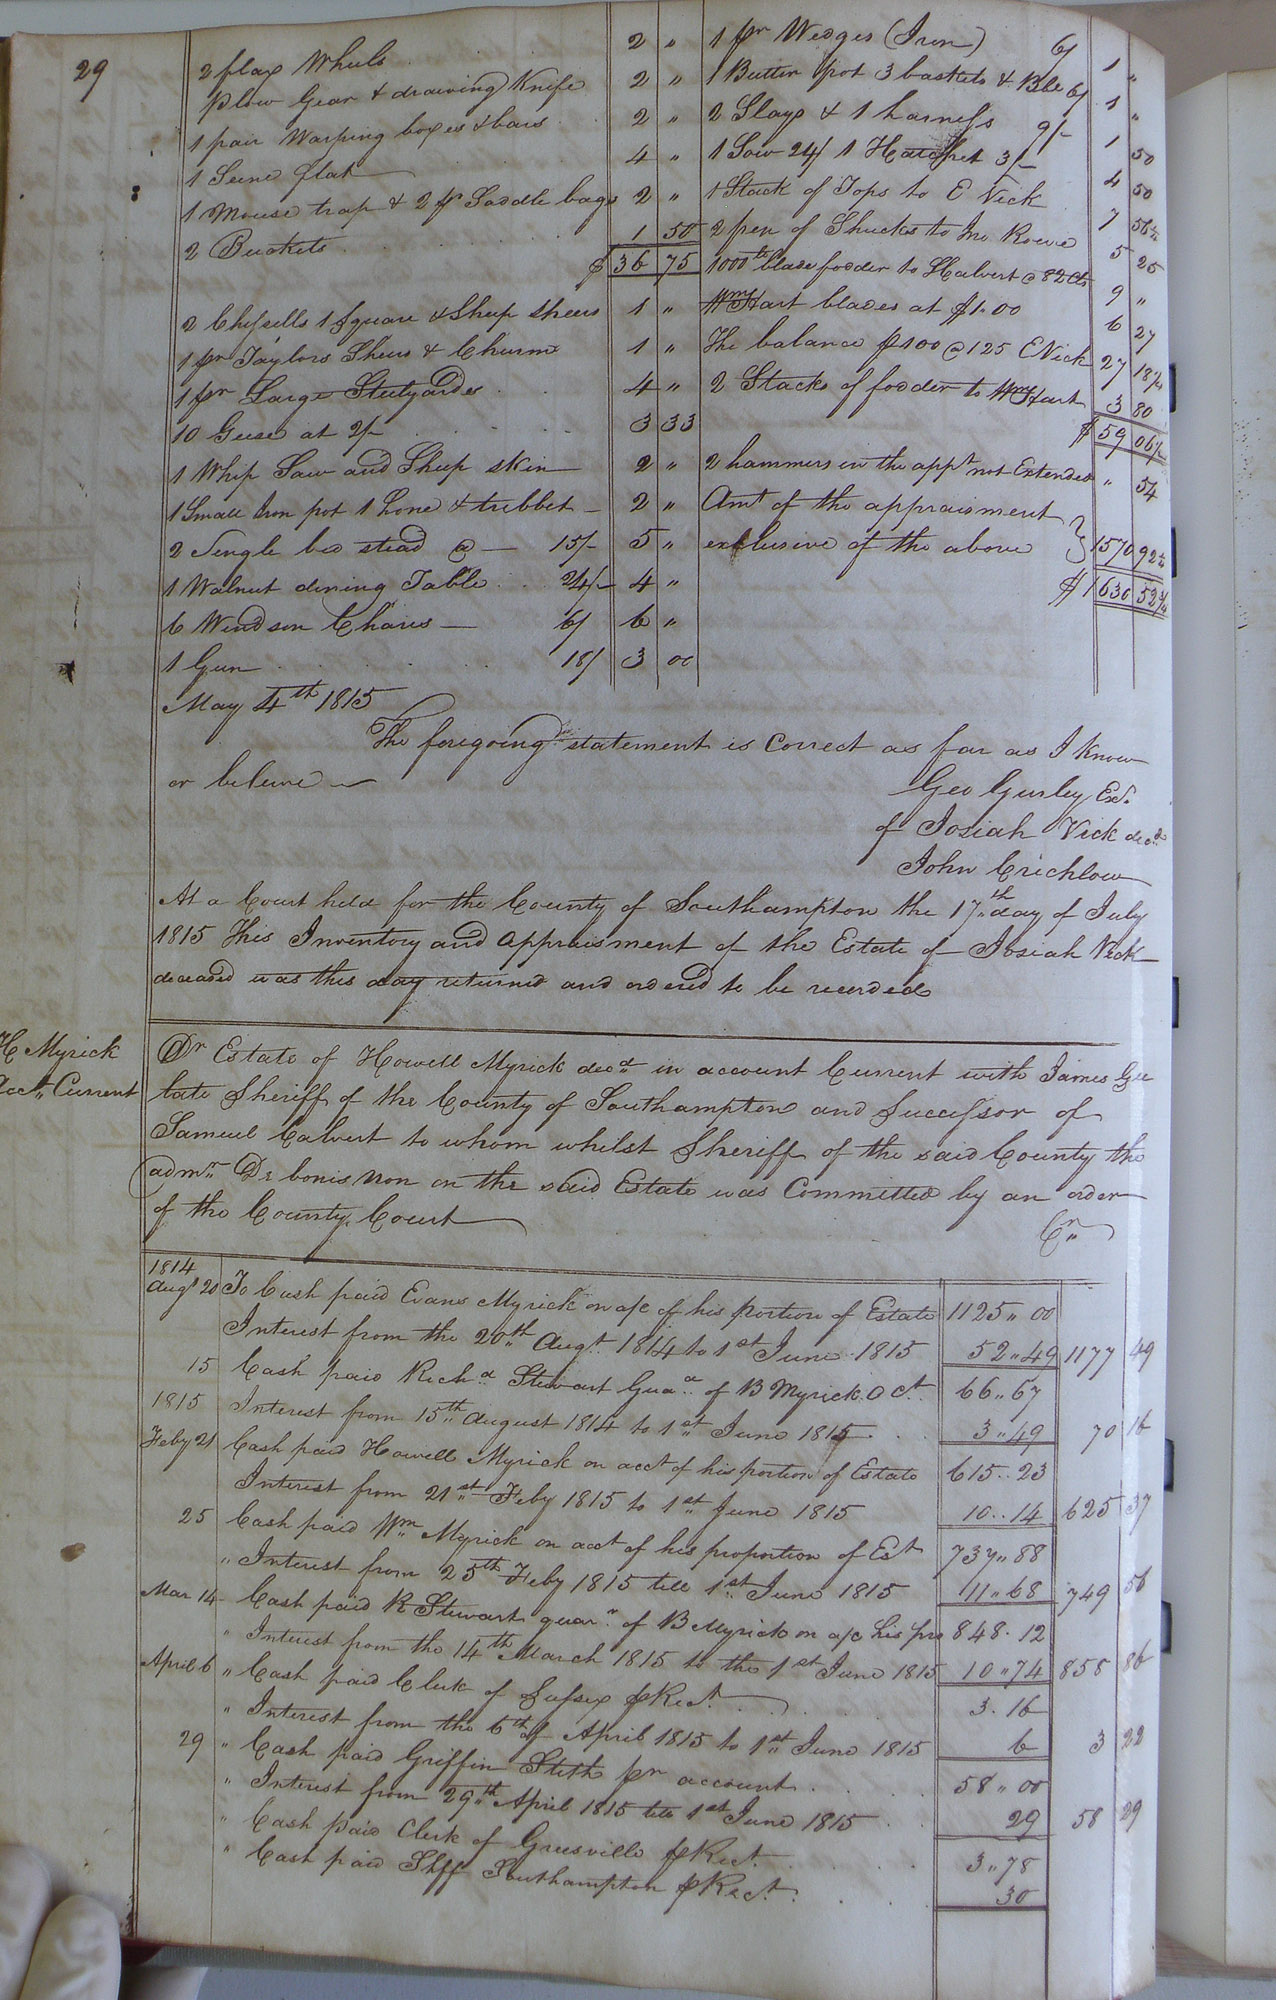 29
2 flax Wheels 2 "
plow Gear & drawing Knife 2 "
1 pair Warping boxes & bars 2 "
1 Seine flat 4 "
1 Mouse trap & 2 pr Saddle bags 2 "
2 Buckets 1 50
$ 36 75
2 Chissells 1 Square & Sheep Sheers 1 "
1 pr Taylors Shears & Churm 1 "
1 pr Large Stulyardes 4 "
10 Geese at 2/- 3 33
1 Whip Saw and Sheep skin 2 "
1 Small Iron pot 1 hone & tribbet 2 "
2 Single bed stead @ 15/- 5 "
1 Walnut dining Table 24/- 4 "
6 Windson Chairs 6/ 6 "
1 Gun 18/ 3 00
1 pr Wedges (Iron) 6/ 1 "
1 Butter pot 3 baskets & Ble 6/ 1 "
2 Slays & 1 harness 9/- 1 50
1 Sow 24/ 1 Hatchet 3/- 4 50
1 Stack of Tops to E Vick 7 56
2 pen of Shucks to Jno Rowe 5 25
1000 blade fodder to Halvert @ 82 Cts 9 "
Wm Hart blades at $1.00 6 27
The balance $100 @ 125 E Vick 27 18
2 Stacks of fodder to Wm Hart 3 80
$ 59 06
2 hammers in the appt not Extended " 54
Amt of the appraisment
exclusive of the above 1570 92
$ 1630 52
May 4th 1815
The foregoing statement is Correct as far as I know
or beleive
Geo Gurley Exr.
of Josiah Vick decd
John Crichlow
At a Court held for the County of Southampton the 17th day of July
1815 This Inventory and appraisment of the Estate of Josiah Vick
deceased was this day returned and ordered to be recorded
H Myrick
Acct. Current
Dr Estate of Howell Myrick decd in account Current with James Gee
late Sheriff of the County of Southampton and Successor of
Samuel Calvert to whom whilst Sheriff of the said County the
admn. De bonis non on the said Estate was Committed by an order
of the County Court
Cr
1814
Augt 20 To Cash paid Evans Myrick on a/c of his portion of Estate 1125 " 00
Interest from the 20th Augt 1814 to 1st June 1815 52 " 49 1177 49
15 Cash paid Richd Stewart Guad of B Myrick 66 " 67
1815 Interest from 15th August 1814 to 1st June 1815 3 " 49 70 16
Feby 21 Cash paid Howell Myrick on acct of his portion of Estate 615 .. 23
Interest from 21st Feby 1815 to 1st June 1815 10 .. 14 625 37
25 Cash paid Wm Myrick on acct of his proportion of Est 737 " 88
" Interest from 25th Feby 1815 till 1st June 1815 11 " 68 749 56
Mar 14 Cash paid R Stewart guarn. of B Myrick on a/c his pro 848 . 12
" Interest from the 14th March 1815 to the 1st June 1815 10 " 74 858 86
April 6 " Cash paid Clerk of Sussex p Rect. 3 . 16
" Interest from the 6th of April 1815 to 1st June 1815 6 3 22
29 " Cash paid Griffin Stith pr account 58 " 00
" Interest from 29th April 1815 till 1st June 1815 29 58 29
" Cash paid Clerk of Greesville p Rect. 3 " 78
" Cash paid Shff Southampton p Rect. 30